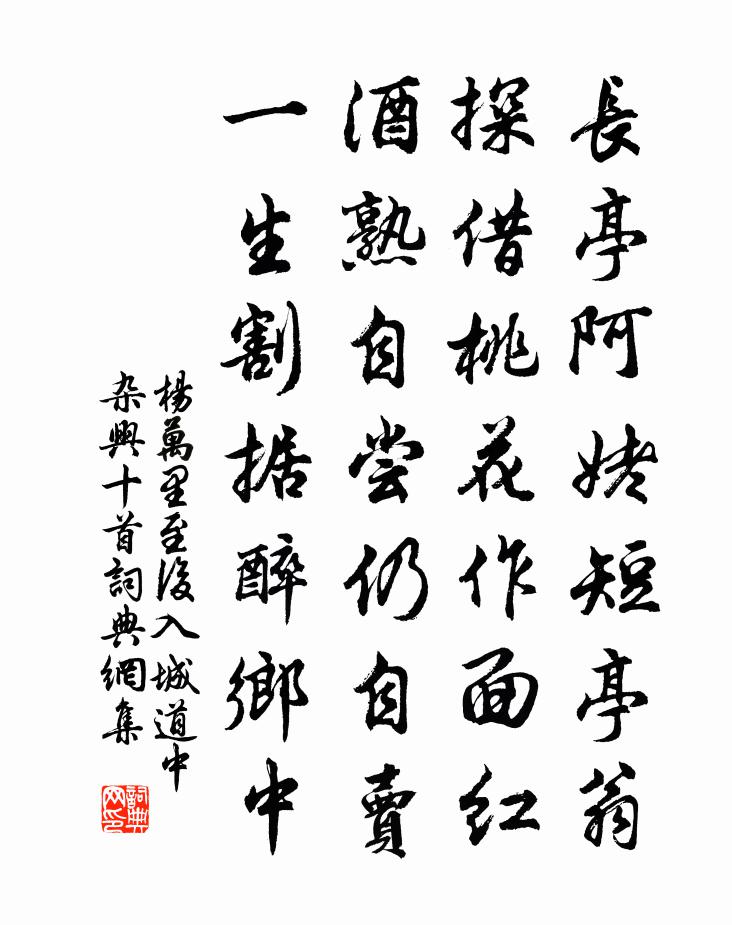 長亭阿姥短亭翁
探借桃花作面紅
酒熟自尝仍自賣
一生割据醉鄉中
楊萬里至後入城道中
杂興十首詞典網集
詞典
网印